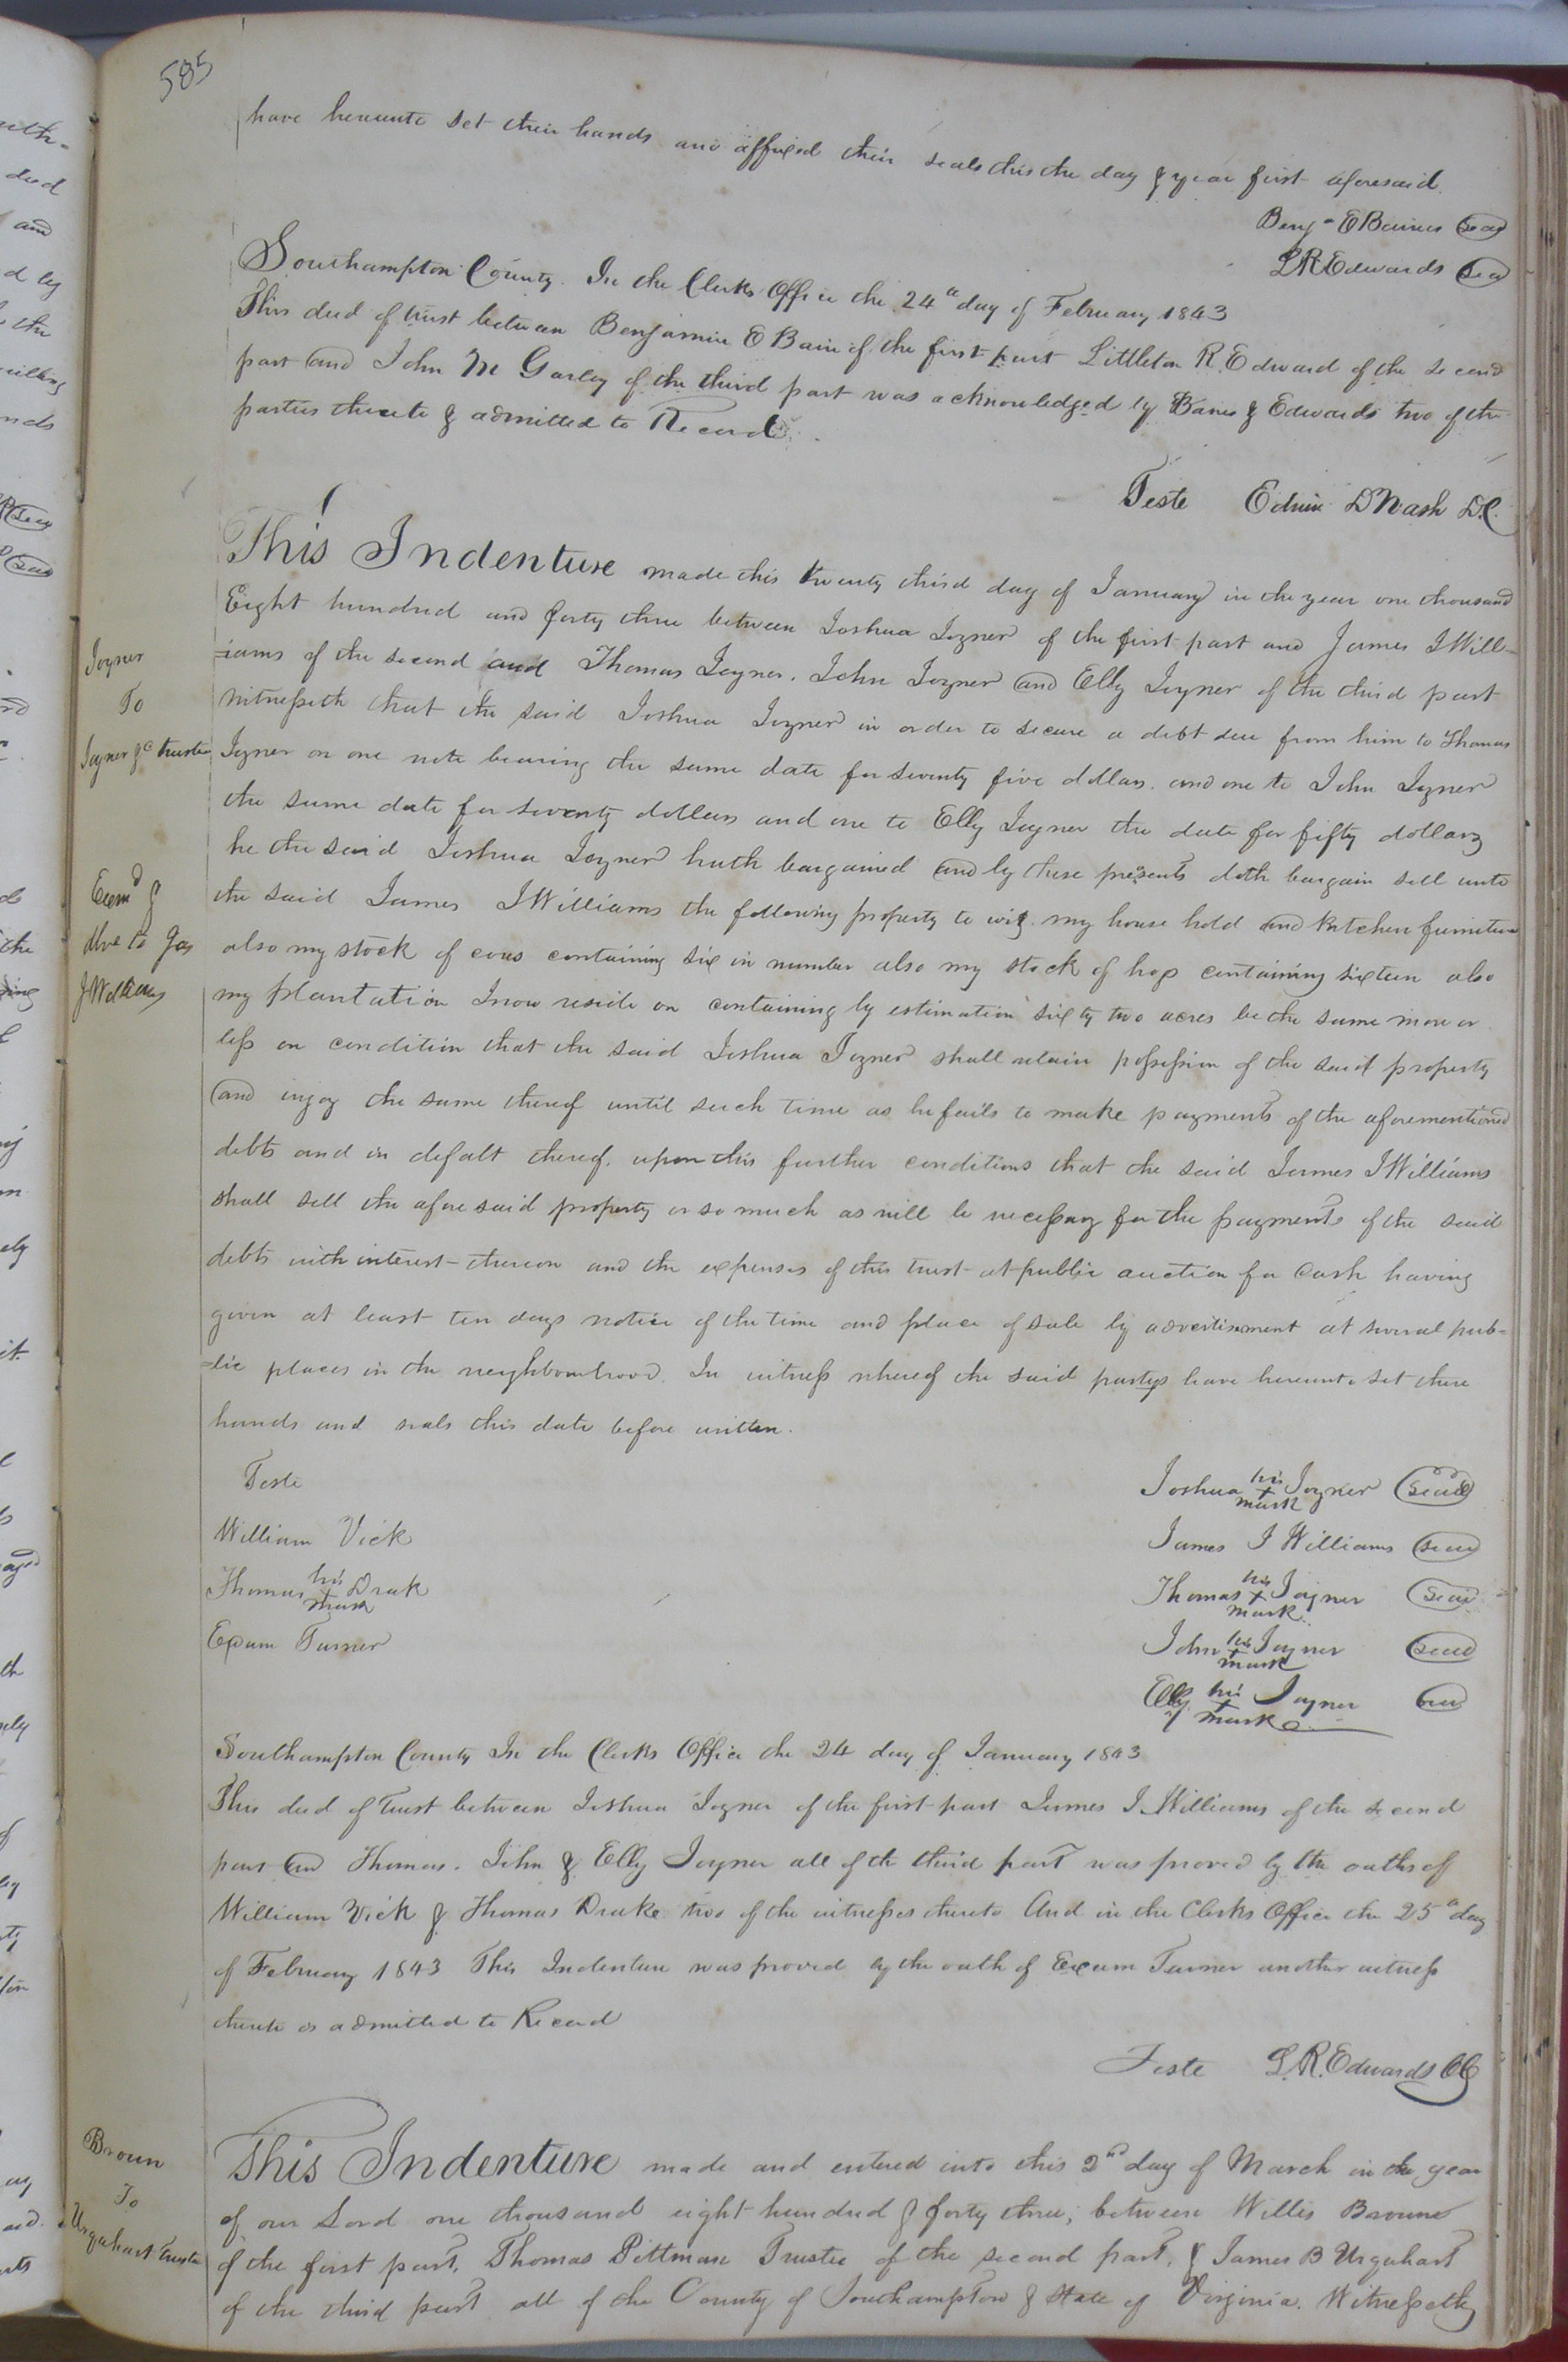 585
have hereunto set their hands and affixed their seals this the day & year first aforesaid.
Benj. E Baines Seal
L R Edwards Seal
Southampton County. In the Clerks Office the 24th day of February 1843
This deed of trust between Benjamin E Bain of the first part Littleton R. Edward of the second
part and John M Gurley of the third part was acknowledged by Baines & Edwards two of the
parties thereto & admitted to Record.
Teste Edwin D Nash D.C.
Joyner
To
Joyner &c trustee
Exm.d &
dlve to Jas
J Williams
This Indenture made this twenty third day of January in the year one thousand
Eight hundred and forty three between Joshua Joyner of the first part and James J Will-
-iams of the second and Thomas Joyner. John Joyner and Elly Joyner of the third part
witnesseth that the said Joshua Joyner in order to secure a debt due from him to Thomas
Joyner on one note bearing the same date for seventy five dollars. and one to John Joyner
the same date for seventy dollars and one to Elly Joyner the date for fifty dollars
he the said Joshua Joyner hath bargained and by these presents doth bargain sell unto
the said James J Williams the following property to wit. my house hold and kitchen furniture
also my stock of cows containing six in number also my stock of hogs containing sixteen also
my plantation I now reside on containing by estimation sixty two acres be the same more or
less on condition that the said Joshua Joyner shall retain possession of the said property
and injoy the same thereof until such time as he fails to make payments of the aforementioned
debts and in defalt thereof. upon this further conditions that the said James J Williams
shall sell the afore said property or so much as will be necessary for the payments of the said
debts with interest thereon and the expenses of this trust at public auction for cash having
given at least ten days notice of the time and place of sale by advertisement at several pub-
-lic places in the neighbourhood. In witness whereof the said partys have hereunto set there
hands and seals this date before written.
Teste
William Vick
Thomas his X mark Drak
Exum Turner
Joshua his X mark Joyner Seal
James J Williams Seal
Thomas his X mark Joyner Seal
John his X mark Joyner Seal
Elly his X mark Joyner Seal
Southampton County In the Clerks Office the 24 day of January 1843
This deed of Trust between Joshua Joyner of the first part James J. Williams of the second
part and Thomas. John & Elly Joyner all of the third part was proved by the oaths of
William Vick & Thomas Drake two of the witnesses thereto And in the Clerks Office the 25th day
of February 1843 This Indenture was proved by the oath of Exum Turner another witness
thereto & admitted to Record
Teste L. R. Edwards CC
Broun
To
Urquhart Trustee
This Indenture made and entered into this 2nd day of March in the year
of our Lord one thousand eight hundred & forty three, between Willis Browne
of the first part, Thomas Pittman Trustee of the second part, & James B Urquhart
of the third part all of the County of Southampton & State of Virginia. Witnesseth